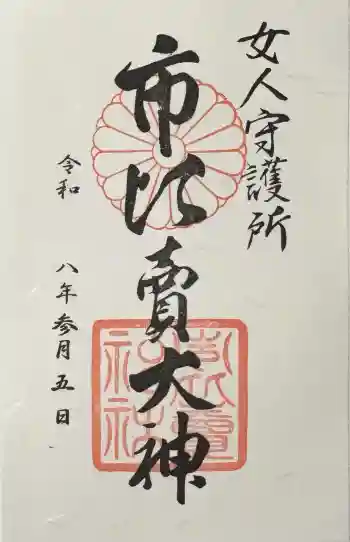 女人守護所
市比賣大神
令和 八年参月五日